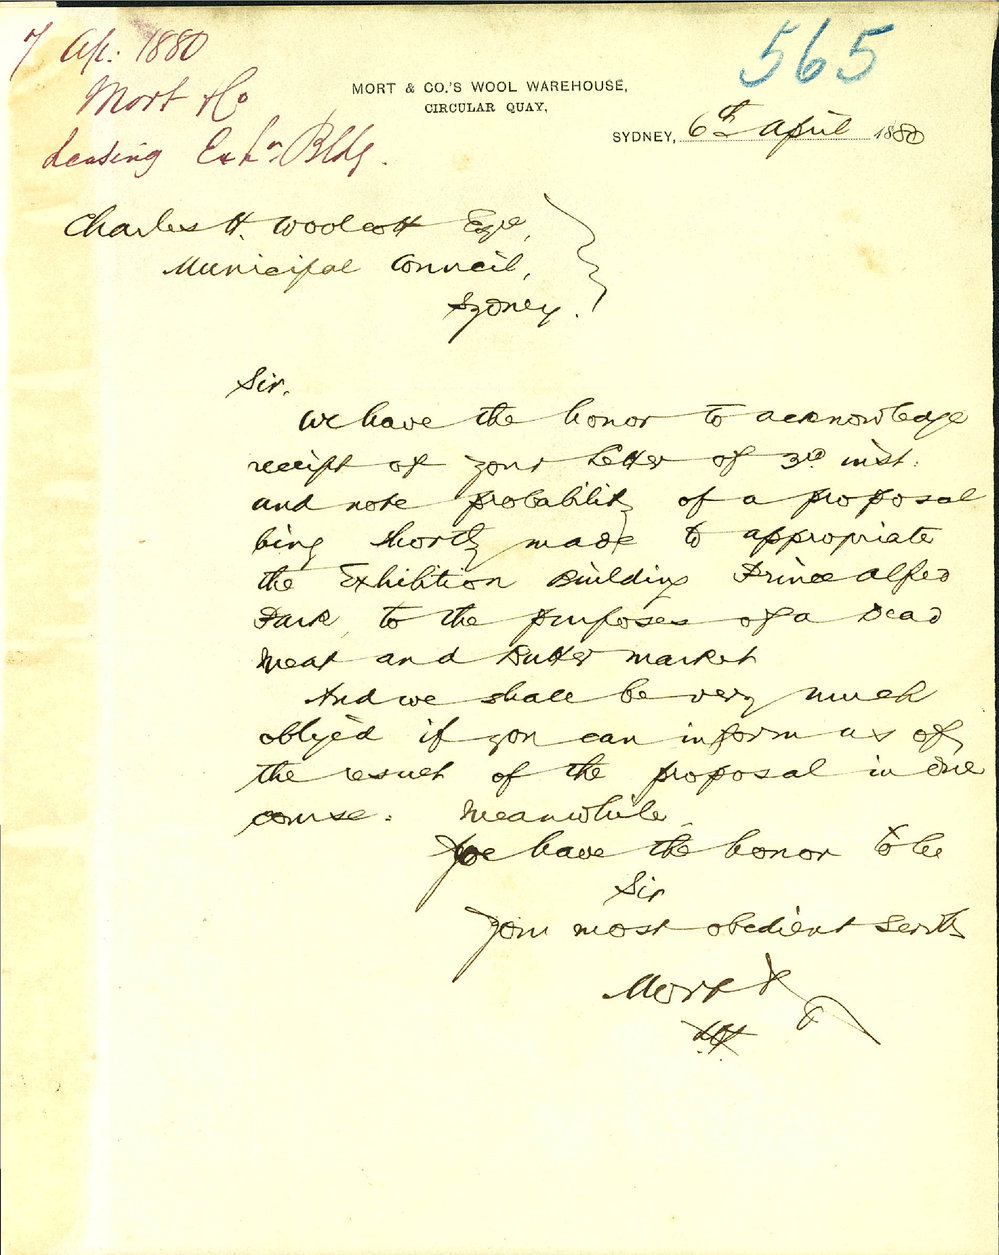 7 Ap: 1880
Mort & Co
Leasing Exhn Bldg.
565
MORT & CO.'S WOOL WAREHOUSE,
CIRCULAR QUAY,
SYDNEY, 6th April 1880
Charles H. Woolcott Esqre,
Municipal Council,
Sydney.
Sir,
We have the honor to acknowledge
receipt of your letter of 3rd inst.
and note probability of a proposal
being shortly made to appropriate
the Exhibition Building Prince Alfred
Park, to the purposes of a Dead
Meat and Butter market
And we shall be very much
obliged if you can inform us of
the result of the proposal in due
course. Meanwhile
We have the honor to be
Sir
Your most obedient Servts
Mort & Co